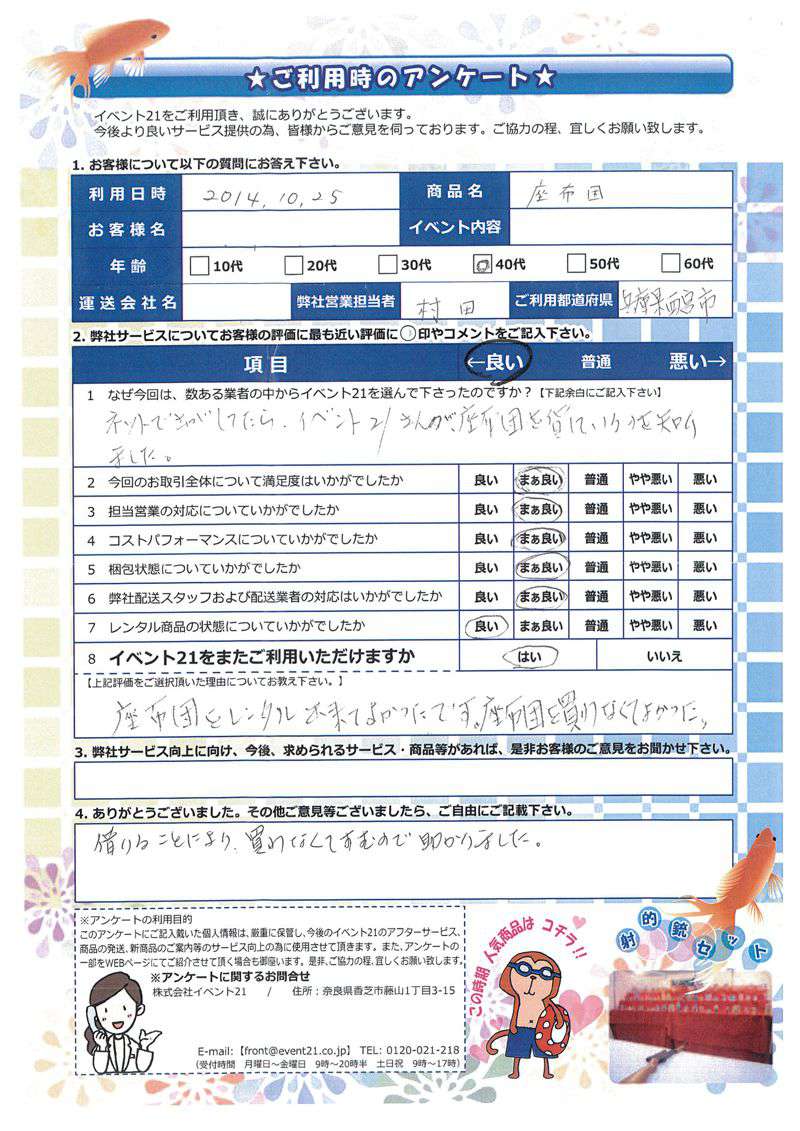 ★ご利用時のアンケート★
イベント21をご利用頂き、誠にありがとうございます。
今後より良いサービス提供の為、皆様からご意見を伺っております。ご協力の程、宜しくお願い致します。
1. お客様について以下の質問にお答え下さい。
利用日時 2014.10.25 商品名 座布団
お客様名 イベント内容
年齢 10代 20代 30代 40代 50代 60代
運送会社名 弊社営業担当者 村田 ご利用都道府県 兵庫県西宮市
2. 弊社サービスについてお客様の評価に最も近い評価に○印やコメントをご記入下さい。
項目 ←良い 普通 悪い→
1 なぜ今回は、数ある業者の中からイベント21を選んで下さったのですか？【下記余白にご記入下さい】
ネットでさがしてたら、イベント21さんが座布団を貸しているのを知り
ました。
2 今回のお取引全体について満足度はいかがでしたか 良い まぁ良い 普通 やや悪い 悪い
3 担当営業の対応についていかがでしたか 良い まぁ良い 普通 やや悪い 悪い
4 コストパフォーマンスについていかがでしたか 良い まぁ良い 普通 やや悪い 悪い
5 梱包状態についていかがでしたか 良い まぁ良い 普通 やや悪い 悪い
6 弊社配送スタッフおよび配送業者の対応はいかがでしたか 良い まぁ良い 普通 やや悪い 悪い
7 レンタル商品の状態についていかがでしたか 良い まぁ良い 普通 やや悪い 悪い
8 イベント21をまたご利用いただけますか はい いいえ
【上記評価をご選択頂いた理由についてお教え下さい。】
座布団をレンタル出来てよかったです。座布団を買わなくてよかった。
3. 弊社サービス向上に向け、今後、求められるサービス・商品等があれば、是非お客様のご意見をお聞かせ下さい。
4. ありがとうございました。その他ご意見等ございましたら、ご自由にご記載下さい。
借りることにより、買わなくてすむので助かりました。
※アンケートの利用目的
このアンケートにご記入戴いた個人情報は、厳重に保管し、今後のイベント21のアフターサービス、
商品の発送、新商品のご案内等のサービス向上の為に使用させて頂きます。また、アンケートの
一部をWEBページにてご紹介させて頂く場合も御座います。是非、ご協力の程、宜しくお願い致します。
※アンケートに関するお問合せ
株式会社イベント21 / 住所：奈良県香芝市藤山1丁目3-15
E-mail:【front@event21.co.jp】 TEL: 0120-021-218
(受付時間 月曜日～金曜日 9時～20時半 土日祝 9時～17時)
この時期 人気商品は コチラ!!
射的銃セット